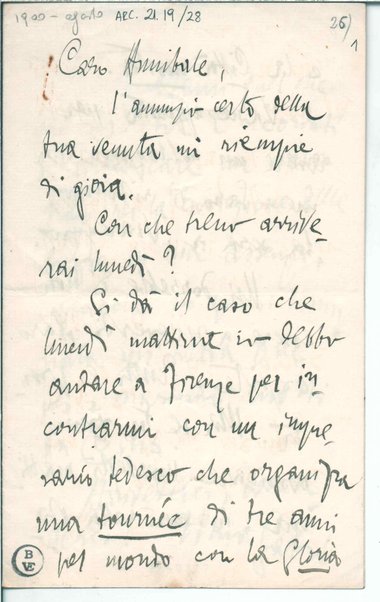 1900 - agosto ARC. 21.19/28 26/1
Caro Annibale,
l'annunzio certo della
tua venuta mi riempie
di gioia.
Con che treno arrive-
rai lunedì?
Si dà il caso che
lunedì mattina io debbo
andare a Firenze per in-
contrarmi con un impre-
sario tedesco che organizza
una tournée di tre anni
pel mondo con la Gloria
B
VE